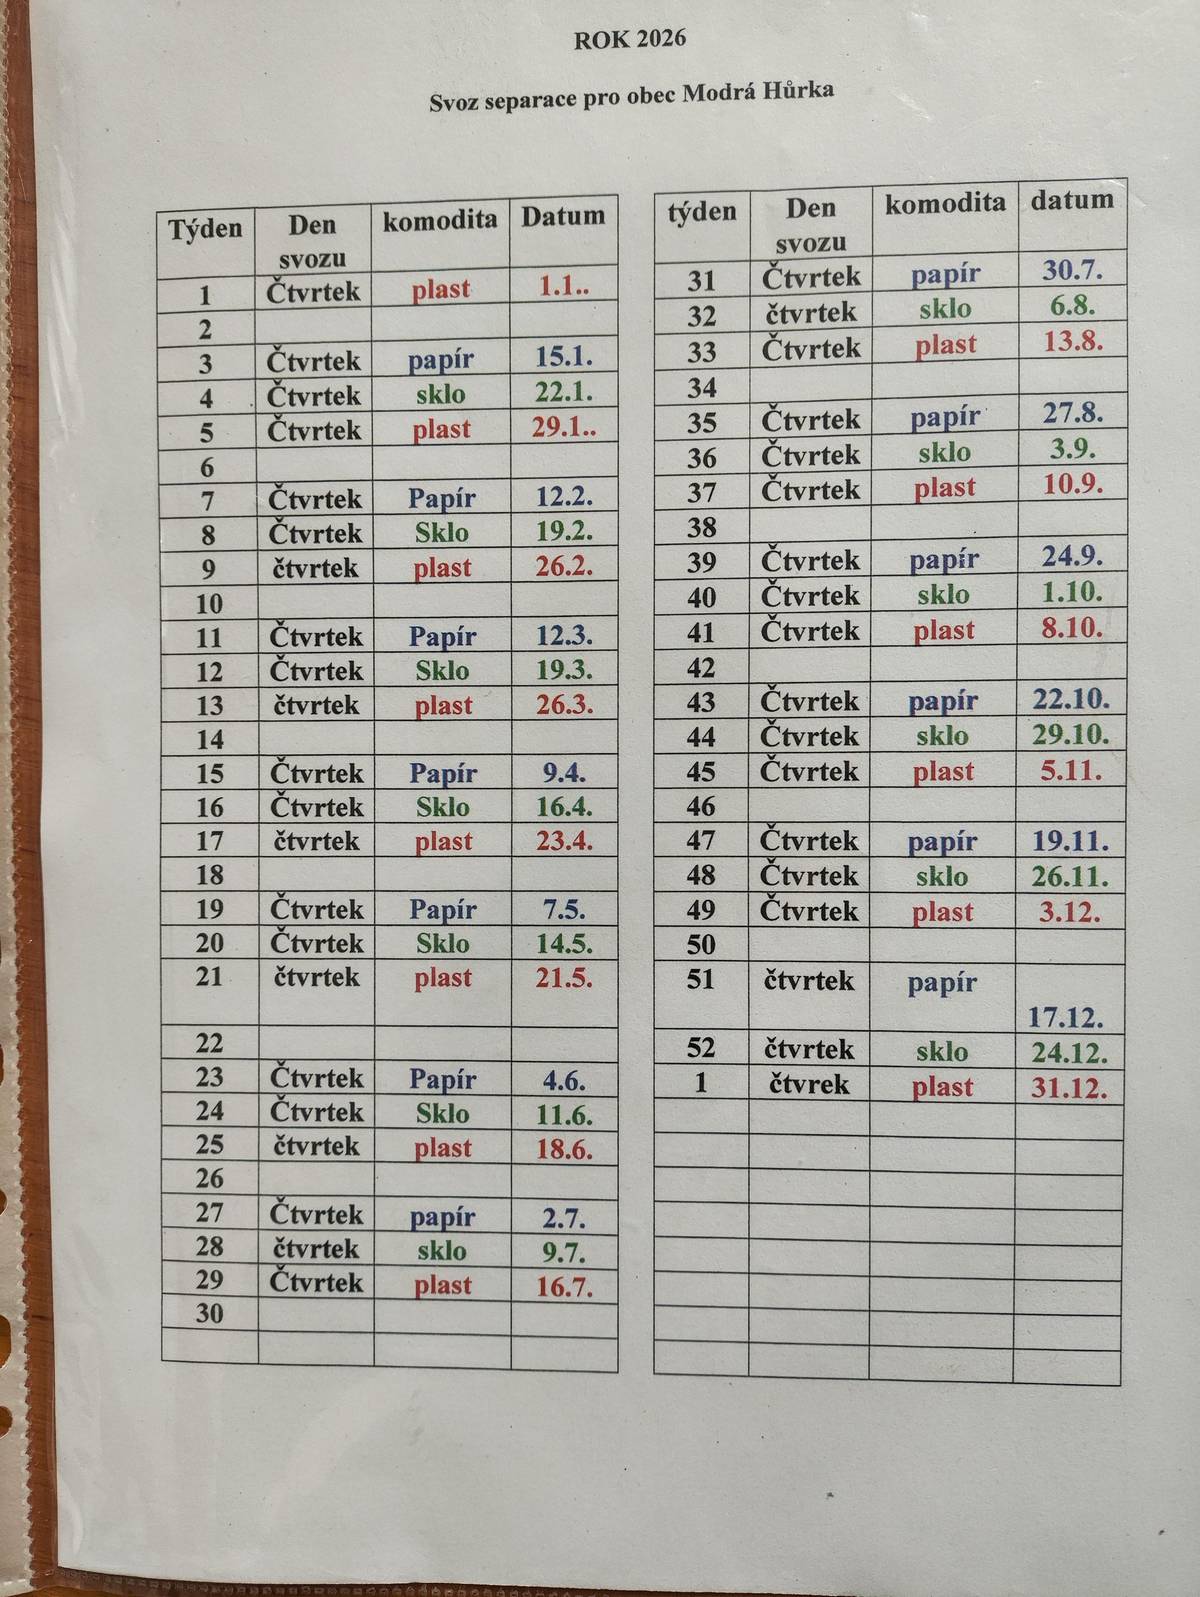 ROK 2026
Svoz separace pro obec Modrá Hůrka
Týden Den svozu komodita Datum
1 Čtvrtek plast 1.1..
2
3 Čtvrtek papír 15.1.
4 Čtvrtek sklo 22.1.
5 Čtvrtek plast 29.1..
6
7 Čtvrtek Papír 12.2.
8 Čtvrtek Sklo 19.2.
9 čtvrtek plast 26.2.
10
11 Čtvrtek Papír 12.3.
12 Čtvrtek Sklo 19.3.
13 čtvrtek plast 26.3.
14
15 Čtvrtek Papír 9.4.
16 Čtvrtek Sklo 16.4.
17 čtvrtek plast 23.4.
18
19 Čtvrtek Papír 7.5.
20 Čtvrtek Sklo 14.5.
21 čtvrtek plast 21.5.
22
23 Čtvrtek Papír 4.6.
24 Čtvrtek Sklo 11.6.
25 čtvrtek plast 18.6.
26
27 Čtvrtek papír 2.7.
28 čtvrtek sklo 9.7.
29 Čtvrtek plast 16.7.
30
týden Den svozu komodita datum
31 Čtvrtek papír 30.7.
32 čtvrtek sklo 6.8.
33 Čtvrtek plast 13.8.
34
35 Čtvrtek papír 27.8.
36 Čtvrtek sklo 3.9.
37 Čtvrtek plast 10.9.
38
39 Čtvrtek papír 24.9.
40 Čtvrtek sklo 1.10.
41 Čtvrtek plast 8.10.
42
43 Čtvrtek papír 22.10.
44 Čtvrtek sklo 29.10.
45 Čtvrtek plast 5.11.
46
47 Čtvrtek papír 19.11.
48 Čtvrtek sklo 26.11.
49 Čtvrtek plast 3.12.
50
51 čtvrtek papír 17.12.
52 čtvrtek sklo 24.12.
1 čtvrek plast 31.12.